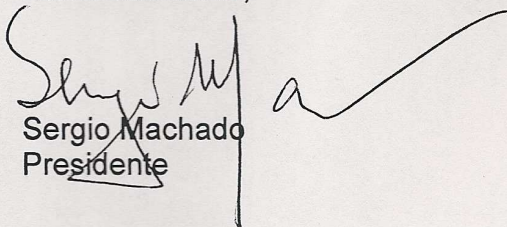 Sergio Machado
Presidente